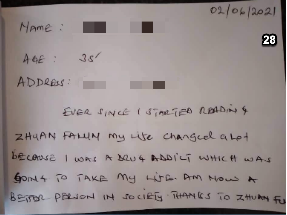 02/06/2021
28
NAME:
AGE: 35
ADDRESS:
EVER SINCE I STARTED READING
ZHUAN FALUN MY LIFE CHANGED ALOT
BECAUSE I WAS A DRUG ADDICT WHICH WAS
GOING TO TAKE MY LIFE. AM NOW A
BETTER PERSON IN SOCIETY THANKS TO ZHUAN FU